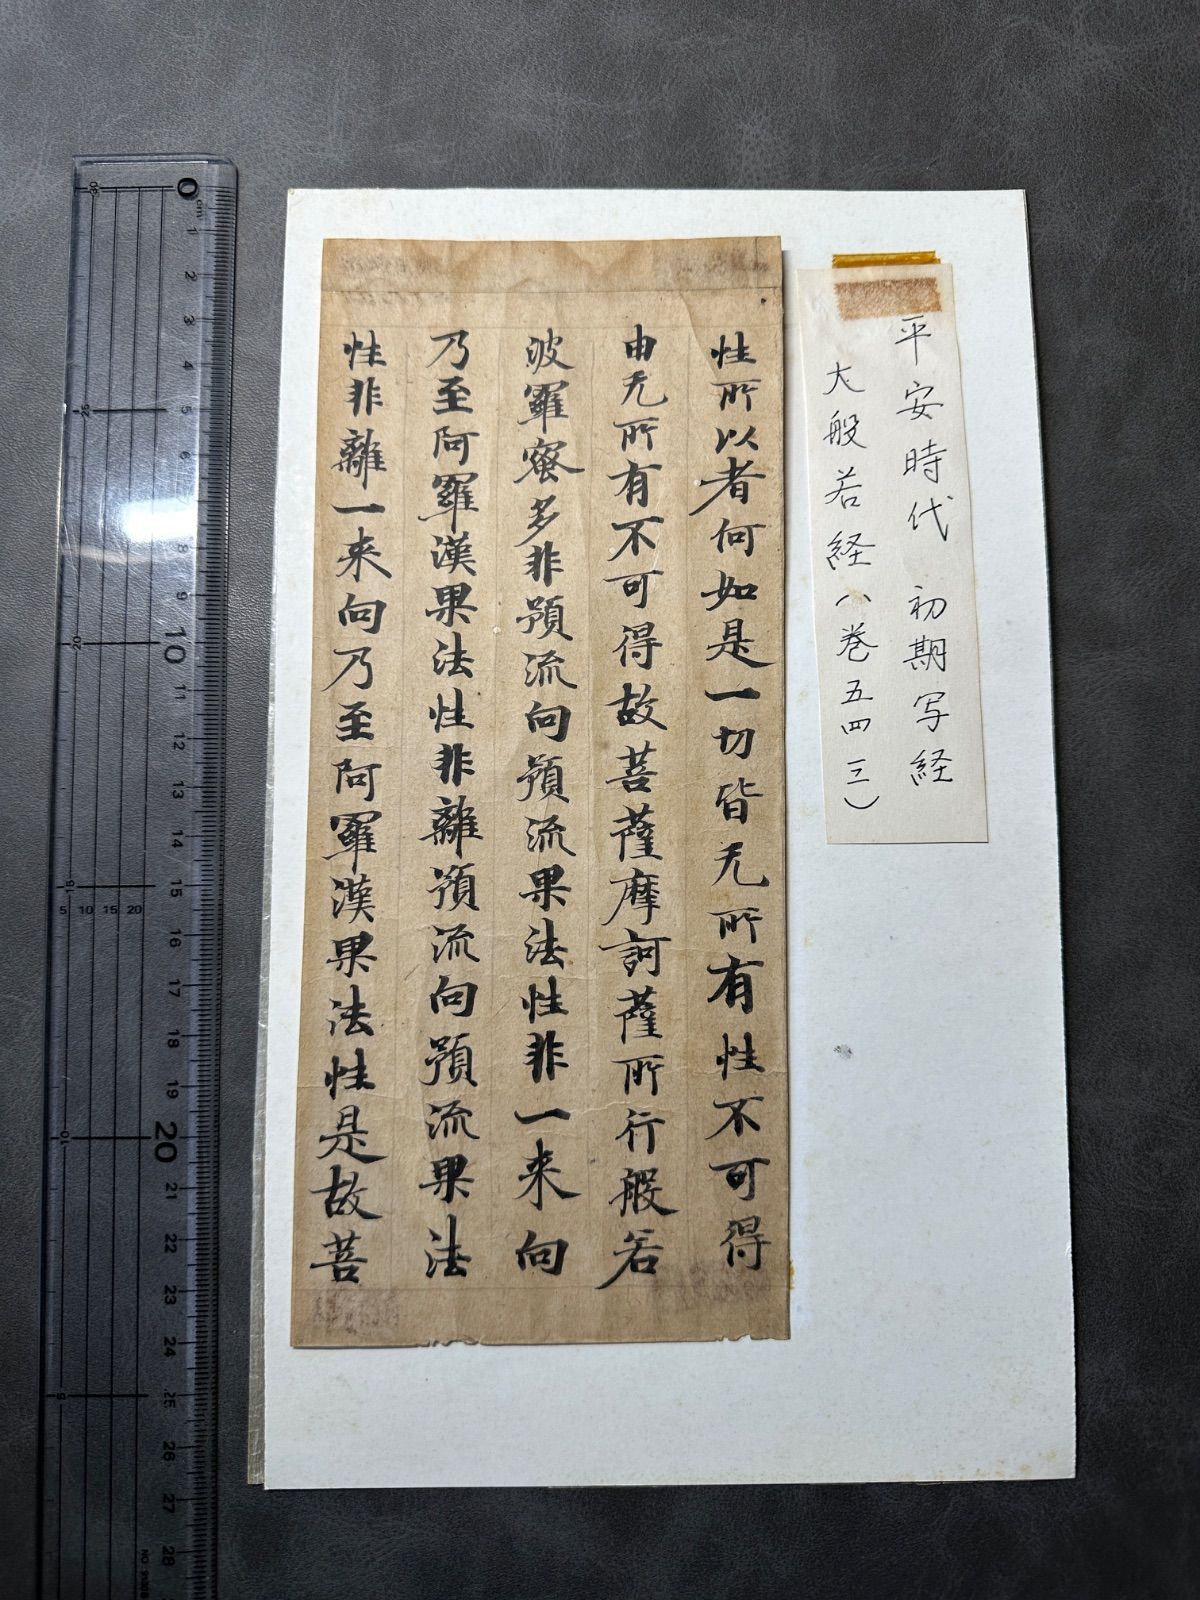 平安時代 初期写経
大般若経(巻五四三)
性所以者何如是一切皆无所有性不可得
由无所有不可得故菩薩摩訶薩所行般若
波羅蜜多非預流向預流果法性非一来向
乃至阿羅漢果法性非離預流向預流果法
性非離一来向乃至阿羅漢果法性是故菩
0
cm
1
2
3
4
5
8
9
10
11
12
13
14
15
16
17
18
19
20
21
22
23
24
25
26
27
28
30
25
20
15
5 10 15 20
10
5